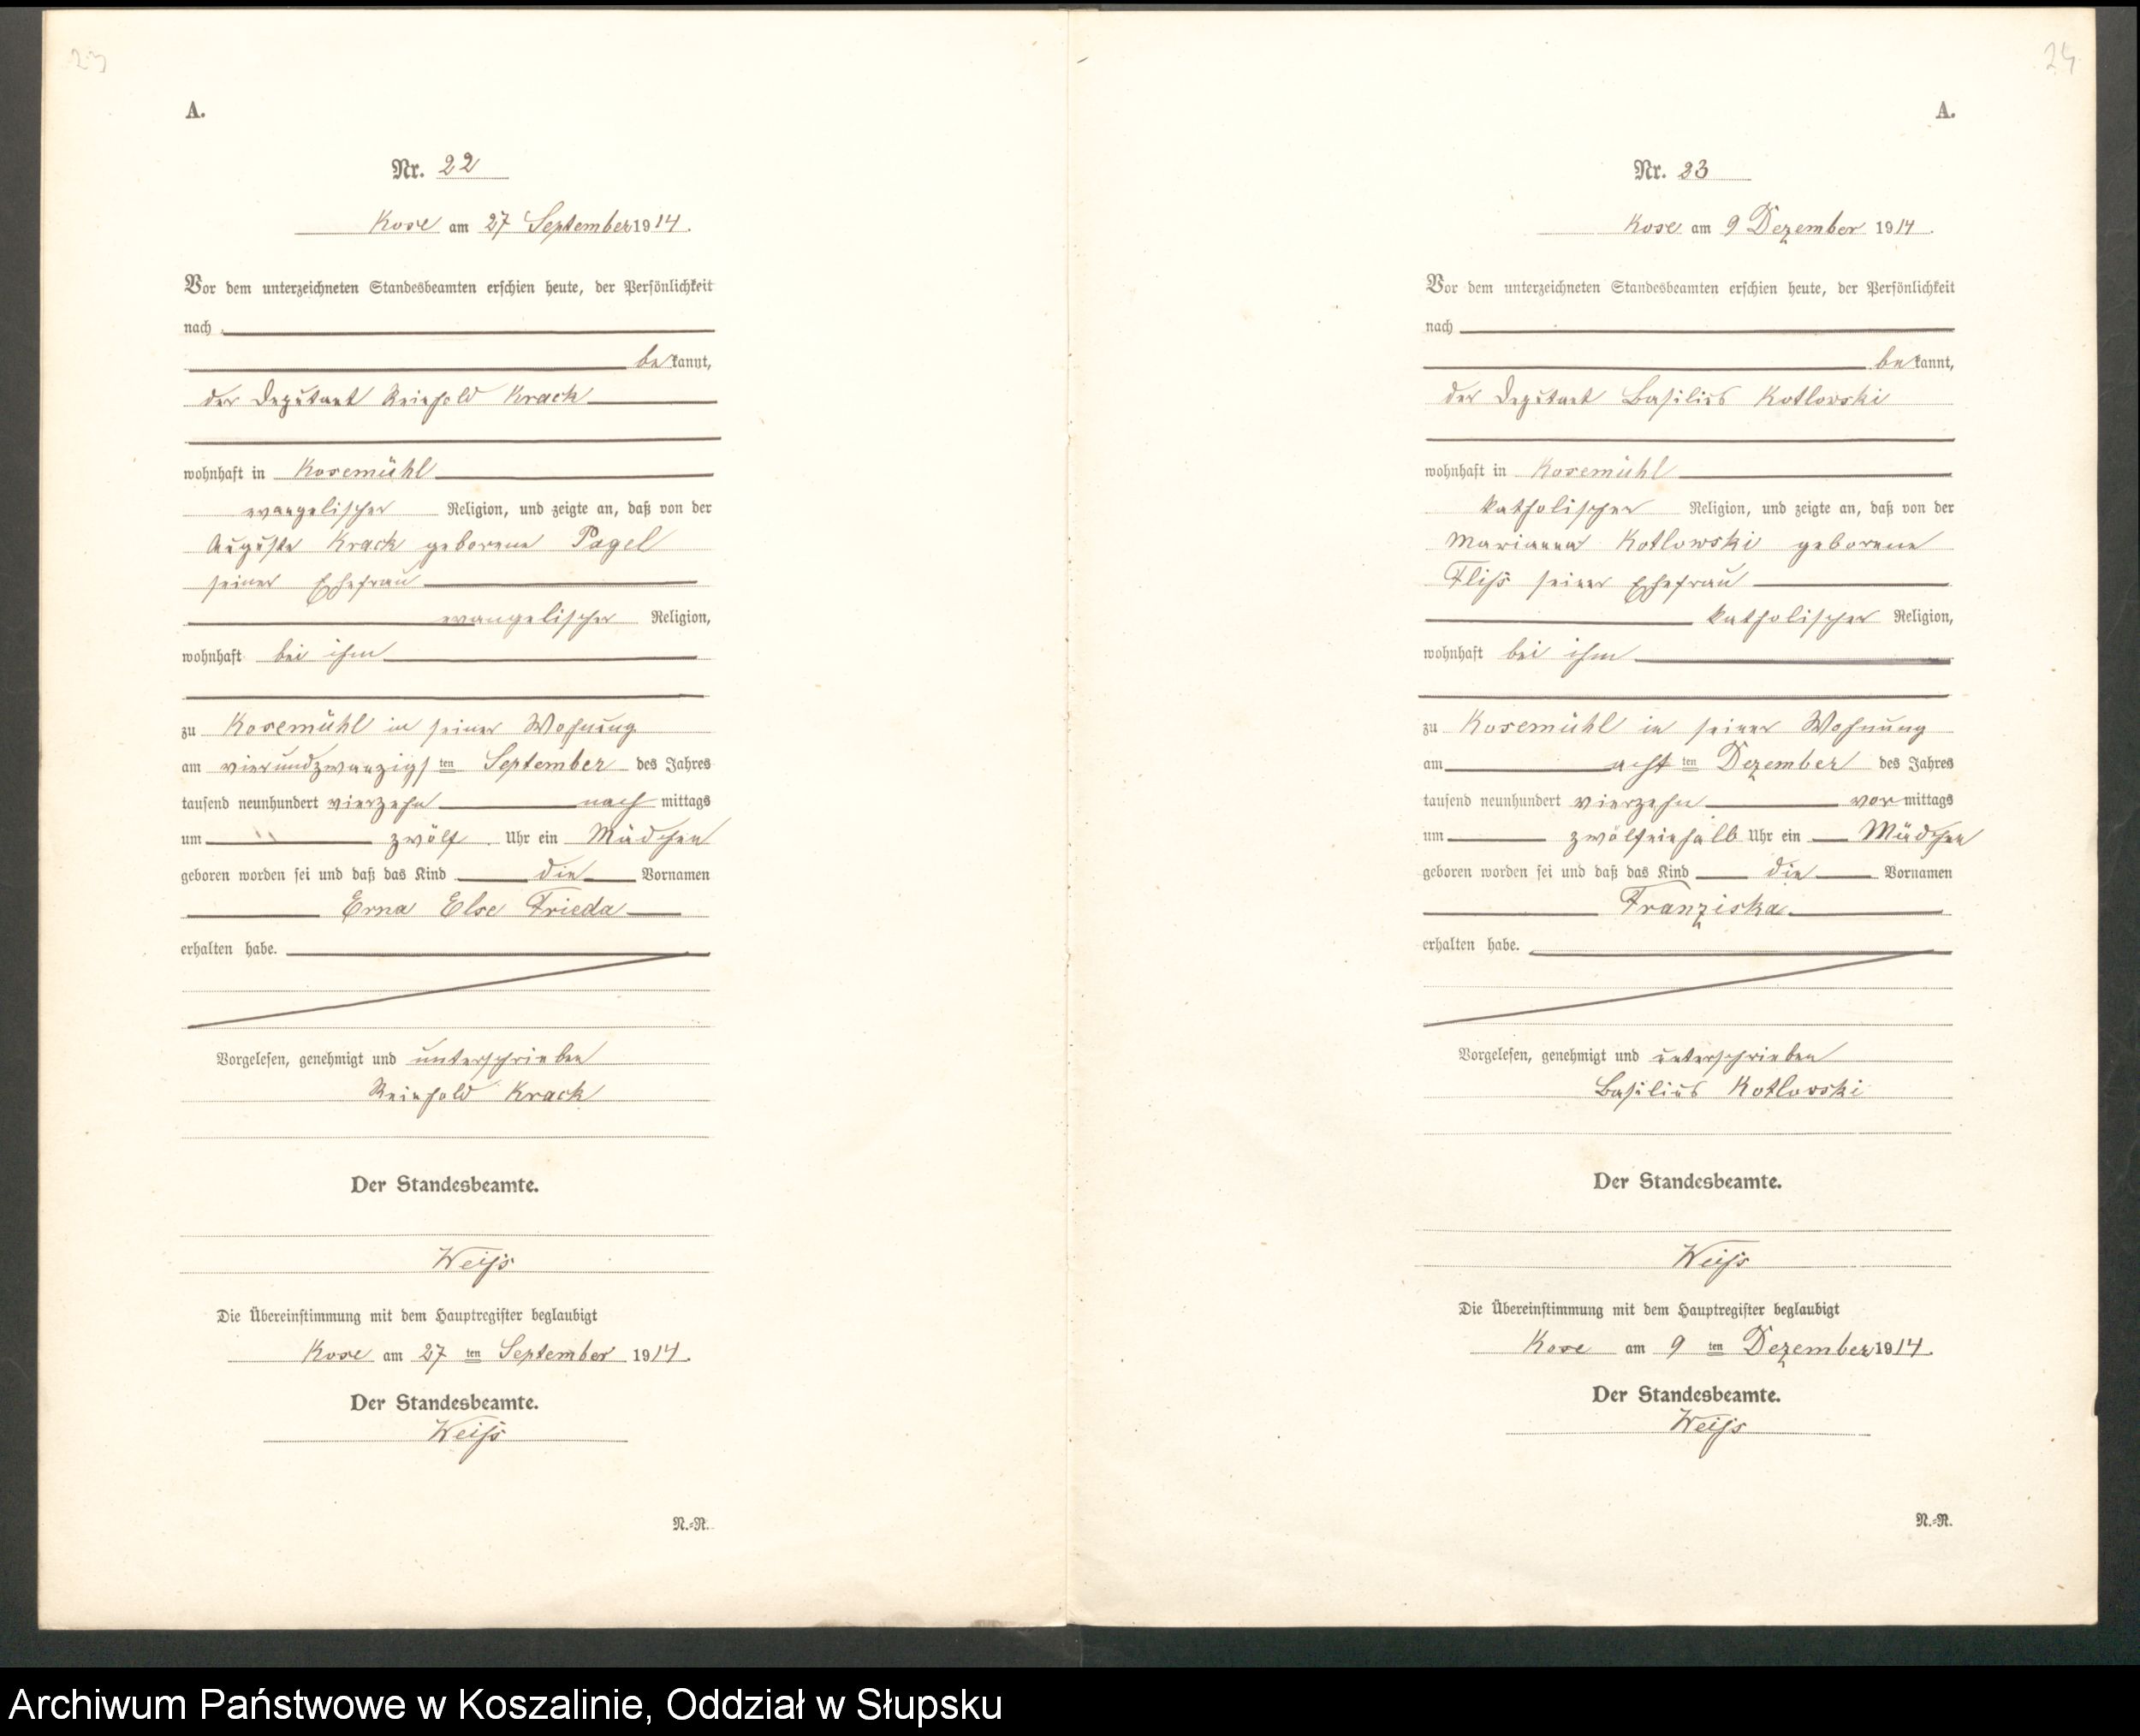 23
A.
Nr. 22
Kose am 27 September 1914.
Vor dem unterzeichneten Standesbeamten erschien heute, der Persönlichkeit
nach
be kannt,
der Deputant Reinhold Krack
wohnhaft in Kosemühl
evangelischer Religion, und zeigte an, daß von der
Auguste Krack geborene Pagel
seiner Ehefrau
evangelischer Religion,
wohnhaft bei ihm
zu Kosemühl in seiner Wohnung
am vierundzwanzigs ten September des Jahres
tausend neunhundert vierzehn nach mittags
um zwölf Uhr ein Mädchen
geboren worden sei und daß das Kind die Vornamen
Erna Else Frieda
erhalten habe.
Vorgelesen, genehmigt und unterschrieben
Reinhold Krack
Der Standesbeamte.
Weiß
Die Übereinstimmung mit dem Hauptregister beglaubigt
Kose am 27 ten September 1914.
Der Standesbeamte.
Weiß
N.-R.
24
A.
Nr. 23
Kose am 9 Dezember 1914.
Vor dem unterzeichneten Standesbeamten erschien heute, der Persönlichkeit
nach
be kannt,
der Deputant Basilius Kotlowski
wohnhaft in Kosemühl
katholischer Religion, und zeigte an, daß von der
Marianna Kotlowski geborene
Fliß seiner Ehefrau
katholischer Religion,
wohnhaft bei ihm
zu Kosemühl in seiner Wohnung
am acht ten Dezember des Jahres
tausend neunhundert vierzehn vor mittags
um zwölfeinhalb Uhr ein Mädchen
geboren worden sei und daß das Kind die Vornamen
Franziska
erhalten habe.
Vorgelesen, genehmigt und unterschrieben
Basilius Kotlowski
Der Standesbeamte.
Weiß
Die Übereinstimmung mit dem Hauptregister beglaubigt
Kose am 9 ten Dezember 1914.
Der Standesbeamte.
Weiß
N.-R.
Archiwum Państwowe w Koszalinie, Oddział w Słupsku